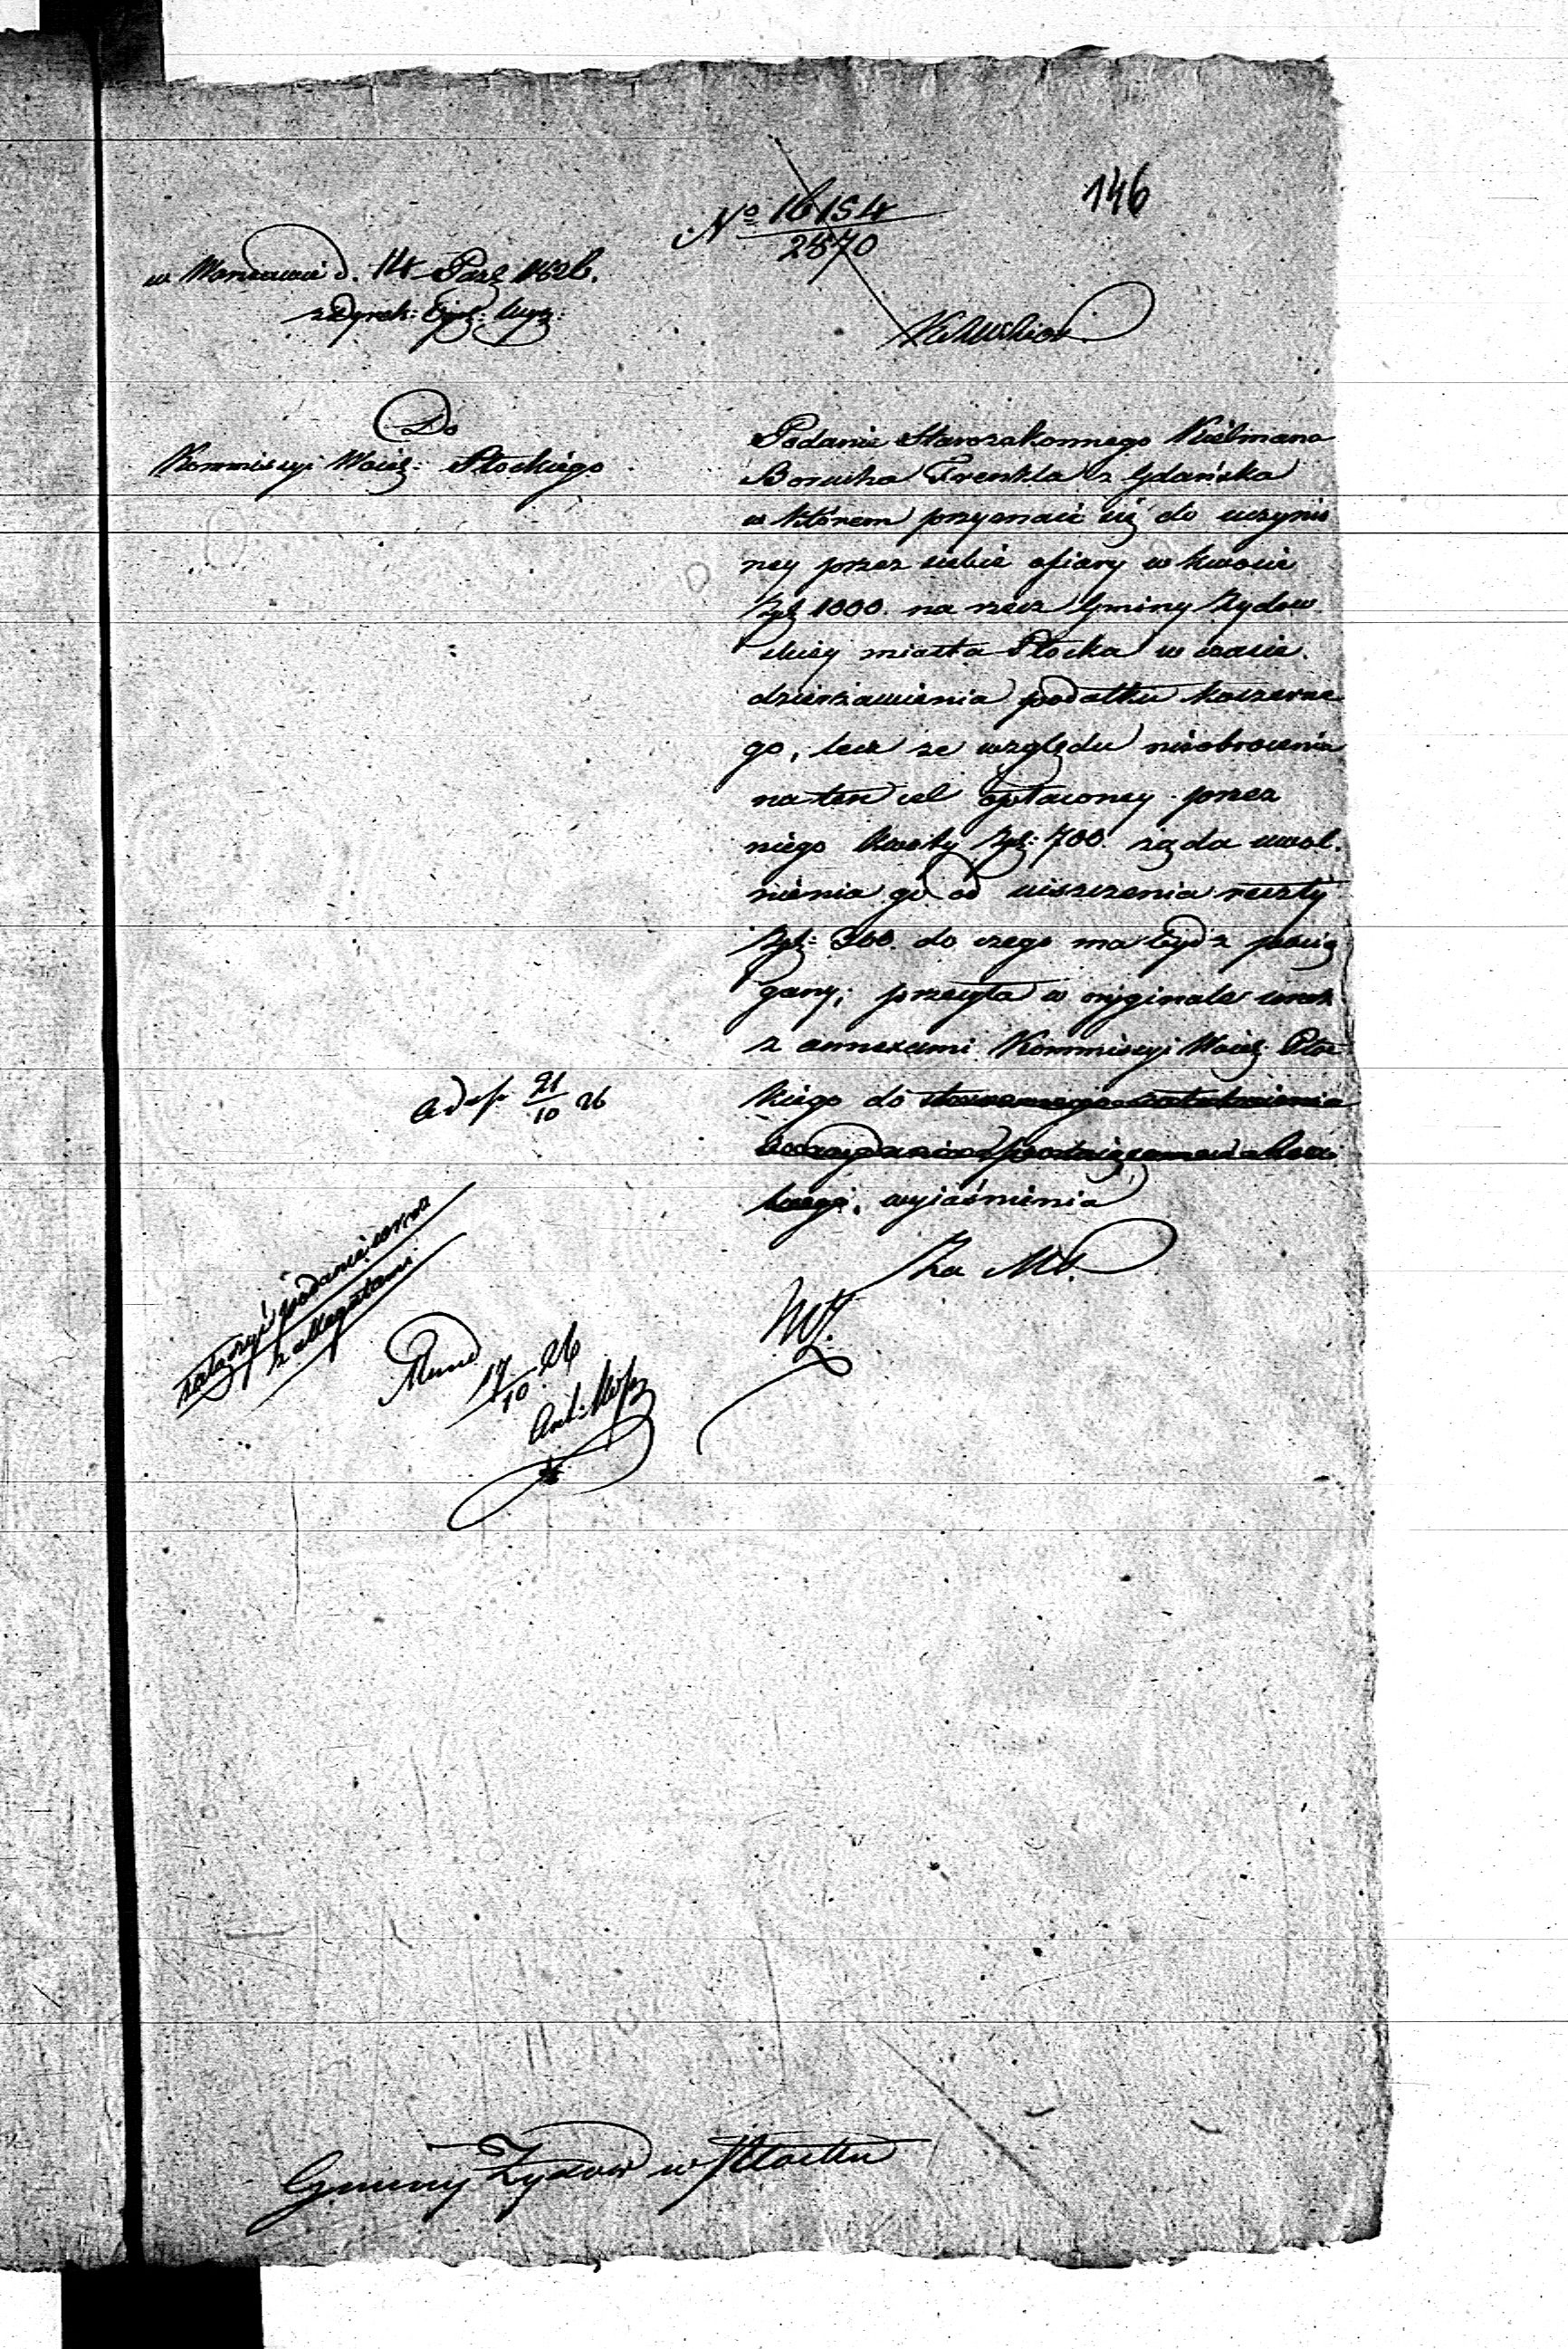 146
No 16154
2870
w Warszawie d. 14 Paźz 1826.
Do
Kommissyi Wojew: Płockiego
Podanie Starozakonnego Kielmana
Borucha Frenkla z Gdańska
w którem przyznaie się do uczynio
ney przez siebie ofiary w kwocie
Złp 1000. na rzecz Gminy Żydow
skiey miasta Płocka w czasie
dzierżawienia podatku koszerne
go, lecz ze względu nieobrócenia
na ten cel opłaconey przez
niego kwoty Złp: 700. żąda uwol
nienia go od uiszczenia reszty
Złp: 300. do czego ma bydź pocią
gany; przesyła w oryginale wraz
z annexami Kommissyi Wojew Płoc
kiego do
wyiaśnienia
Za Mt.
exp. 21/10 26
załączyć podanie wraz
z allegatami
Mund
17/10 26
Gminy Żydow w Płocku